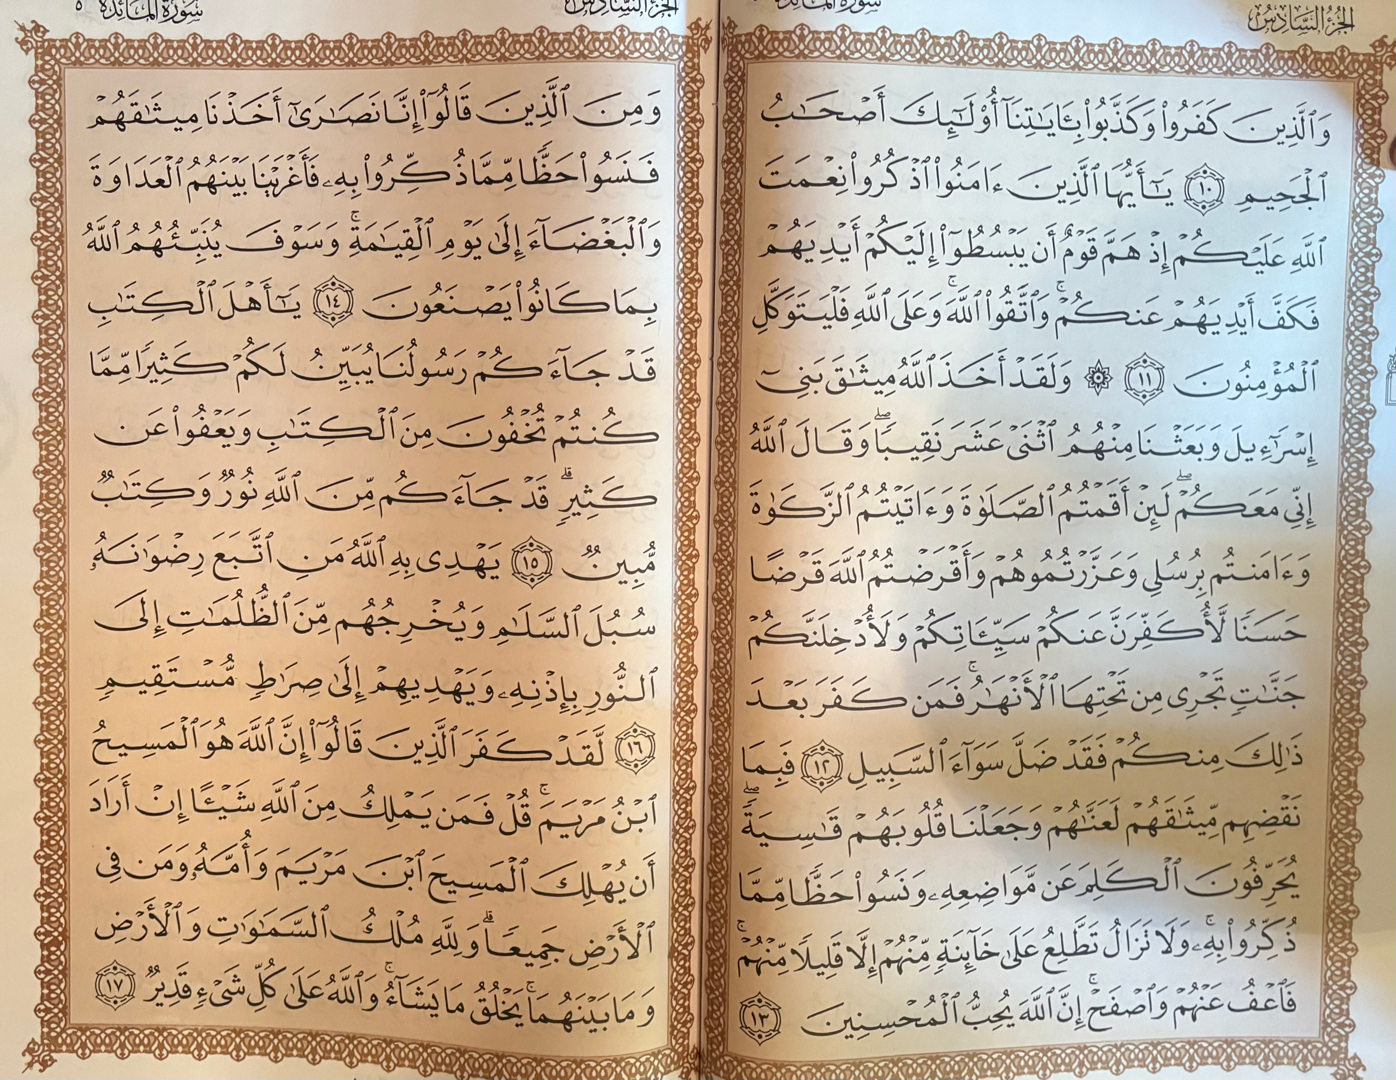 الجزء السادس
سورة المائدة
وَٱلَّذِينَ كَفَرُوا۟ وَكَذَّبُوا۟ بِـَٔايَـٰتِنَآ أُو۟لَـٰٓئِكَ أَصْحَـٰبُ
ٱلْجَحِيمِ ١٠ يَـٰٓأَيُّهَا ٱلَّذِينَ ءَامَنُوا۟ ٱذْكُرُوا۟ نِعْمَتَ
ٱللَّهِ عَلَيْكُمْ إِذْ هَمَّ قَوْمٌ أَن يَبْسُطُوٓا۟ إِلَيْكُمْ أَيْدِيَهُمْ
فَكَفَّ أَيْدِيَهُمْ عَنكُمْ ۖ وَٱتَّقُوا۟ ٱللَّهَ ۚ وَعَلَى ٱللَّهِ فَلْيَتَوَكَّلِ
ٱلْمُؤْمِنُونَ ١١ ۞ وَلَقَدْ أَخَذَ ٱللَّهُ مِيثَـٰقَ بَنِىٓ
إِسْرَٰٓءِيلَ وَبَعَثْنَا مِنْهُمُ ٱثْنَىْ عَشَرَ نَقِيبًا ۖ وَقَالَ ٱللَّهُ
إِنِّى مَعَكُمْ ۖ لَئِنْ أَقَمْتُمُ ٱلصَّلَوٰةَ وَءَاتَيْتُمُ ٱلزَّكَوٰةَ
وَءَامَنتُم بِرُسُلِى وَعَزَّرْتُمُوهُمْ وَأَقْرَضْتُمُ ٱللَّهَ قَرْضًا
حَسَنًا لَّأُكَفِّرَنَّ عَنكُمْ سَيِّـَٔاتِكُمْ وَلَأُدْخِلَنَّكُمْ
جَنَّـٰتٍ تَجْرِى مِن تَحْتِهَا ٱلْأَنْهَـٰرُ ۚ فَمَن كَفَرَ بَعْدَ
ذَٰلِكَ مِنكُمْ فَقَدْ ضَلَّ سَوَآءَ ٱلسَّبِيلِ ١٢ فَبِمَا
نَقْضِهِم مِّيثَـٰقَهُمْ لَعَنَّـٰهُمْ وَجَعَلْنَا قُلُوبَهُمْ قَـٰسِيَةً ۖ
يُحَرِّفُونَ ٱلْكَلِمَ عَن مَّوَاضِعِهِۦ وَنَسُوا۟ حَظًّا مِّمَّا
ذُكِّرُوا۟ بِهِۦ ۚ وَلَا تَزَالُ تَطَّلِعُ عَلَىٰ خَآئِنَةٍ مِّنْهُمْ إِلَّا قَلِيلًا مِّنْهُمْ ۖ
فَٱعْفُ عَنْهُمْ وَٱصْفَحْ ۚ إِنَّ ٱللَّهَ يُحِبُّ ٱلْمُحْسِنِينَ ١٣
الجزء السادس
سورة المائدة ٥
وَمِنَ ٱلَّذِينَ قَالُوٓا۟ إِنَّا نَصَـٰرَىٰٓ أَخَذْنَا مِيثَـٰقَهُمْ
فَنَسُوا۟ حَظًّا مِّمَّا ذُكِّرُوا۟ بِهِۦ فَأَغْرَيْنَا بَيْنَهُمُ ٱلْعَدَاوَةَ
وَٱلْبَغْضَآءَ إِلَىٰ يَوْمِ ٱلْقِيَـٰمَةِ ۚ وَسَوْفَ يُنَبِّئُهُمُ ٱللَّهُ
بِمَا كَانُوا۟ يَصْنَعُونَ ١٤ يَـٰٓأَهْلَ ٱلْكِتَـٰبِ
قَدْ جَآءَكُمْ رَسُولُنَا يُبَيِّنُ لَكُمْ كَثِيرًا مِّمَّا
كُنتُمْ تُخْفُونَ مِنَ ٱلْكِتَـٰبِ وَيَعْفُوا۟ عَن
كَثِيرٍ ۚ قَدْ جَآءَكُم مِّنَ ٱللَّهِ نُورٌ وَكِتَـٰبٌ
مُّبِينٌ ١٥ يَهْدِى بِهِ ٱللَّهُ مَنِ ٱتَّبَعَ رِضْوَٰنَهُۥ
سُبُلَ ٱلسَّلَـٰمِ وَيُخْرِجُهُم مِّنَ ٱلظُّلُمَـٰتِ إِلَى
ٱلنُّورِ بِإِذْنِهِۦ وَيَهْدِيهِمْ إِلَىٰ صِرَٰطٍ مُّسْتَقِيمٍ
١٦ لَّقَدْ كَفَرَ ٱلَّذِينَ قَالُوٓا۟ إِنَّ ٱللَّهَ هُوَ ٱلْمَسِيحُ
ٱبْنُ مَرْيَمَ ۚ قُلْ فَمَن يَمْلِكُ مِنَ ٱللَّهِ شَيْـًٔا إِنْ أَرَادَ
أَن يُهْلِكَ ٱلْمَسِيحَ ٱبْنَ مَرْيَمَ وَأُمَّهُۥ وَمَن فِى
ٱلْأَرْضِ جَمِيعًا ۗ وَلِلَّهِ مُلْكُ ٱلسَّمَـٰوَٰتِ وَٱلْأَرْضِ
وَمَا بَيْنَهُمَا ۚ يَخْلُقُ مَا يَشَآءُ ۚ وَٱللَّهُ عَلَىٰ كُلِّ شَىْءٍ قَدِيرٌ ١٧